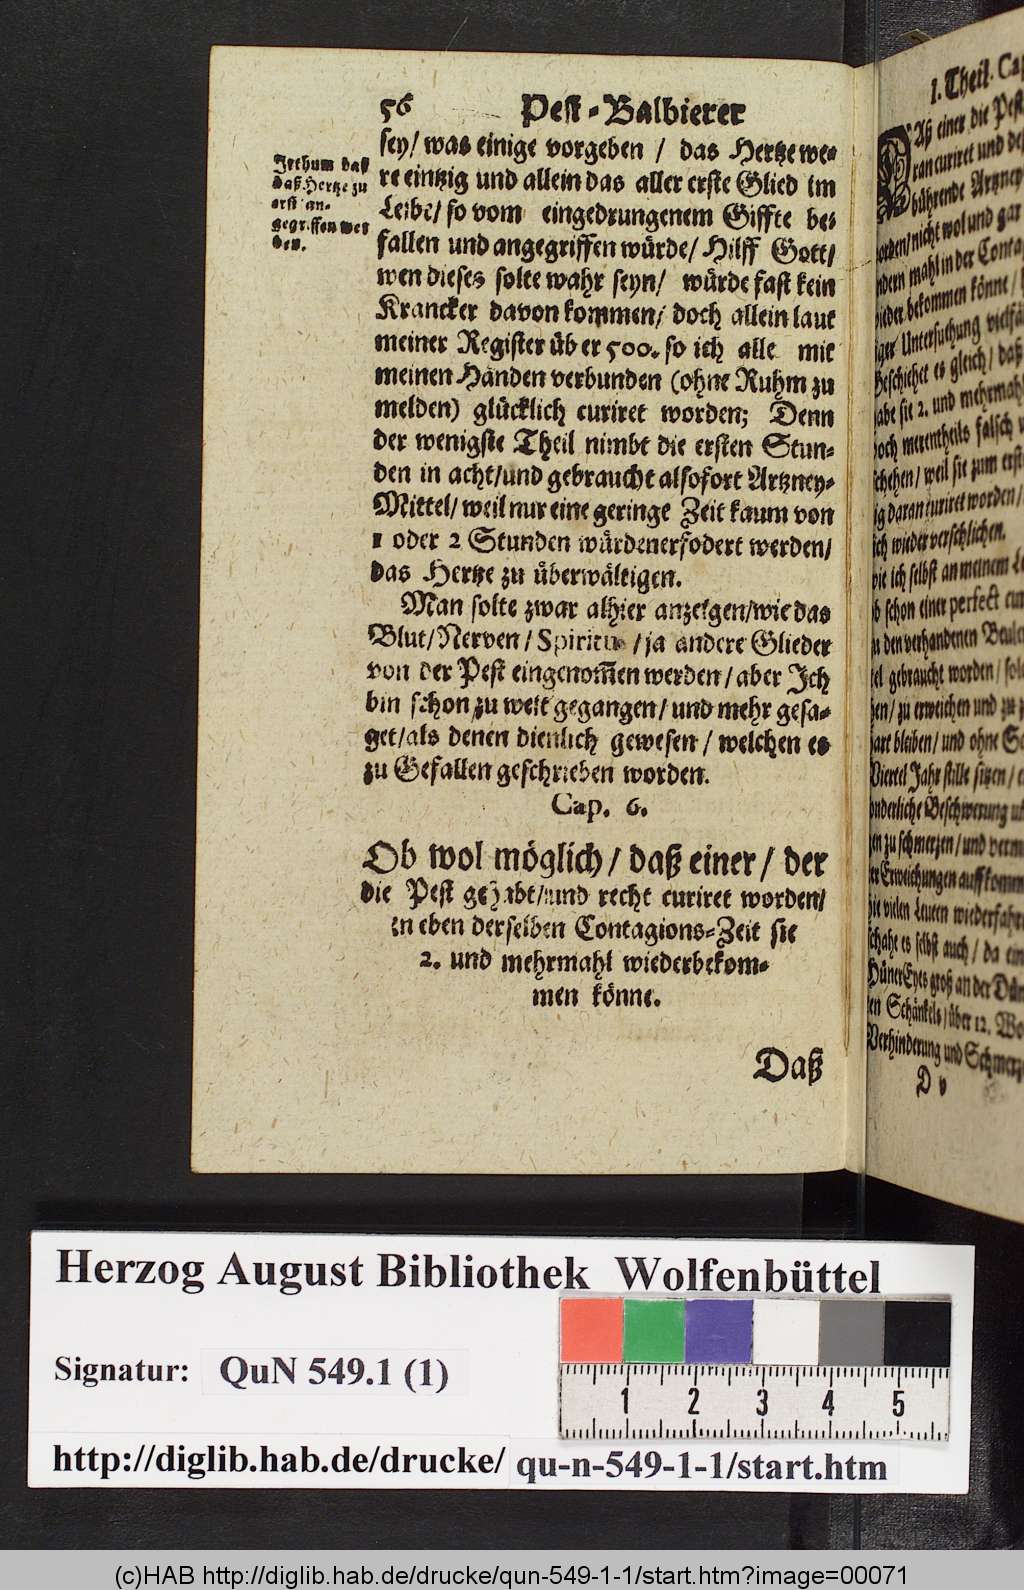 56 Pest-Balbierer
sey/ was einige vorgeben / das Hertze we-
re eintzig und allein das aller erste Glied im
Leibe/ so vom eingedrungenem Giffte be-
fallen und angegriffen würde/ Hilff Gott/
wen dieses solte wahr seyn/ würde fast kein
Krancker davon kommen/ doch allein laut
meiner Register über 500. so ich alle mit
meinen Händen verbunden (ohne Ruhm zu
melden) glücklich curiret worden; Denn
der wenigste Theil nimbt die ersten Stun-
den in acht/ und gebraucht alsofort Artzney-
Mittel/ weil nur eine geringe Zeit kaum von
1 oder 2 Stunden würden erfodert werden/
das Hertze zu überwältigen.
Irthum daß
daß Hertze zu
erst an-
gegriffen wer
den.
Man solte zwar alhier anzeigen/ wie das
Blut/ Nerven/ Spiritus/ ja andere Glieder
von der Pest eingenom̃en werden/ aber Ich
bin schon zu weit gegangen/ und mehr gesa-
get/ als denen dienlich gewesen / welchen es
zu Gefallen geschrieben worden.
Cap. 6.
Ob wol möglich/ daß einer/ der
die Pest gehabt/ und recht curiret worden/
in eben derselben Contagions-Zeit sie
2. und mehrmahl wiederbekom-
men könne.
Daß
I. Theil. Cap
Aß einer die Pest
ran curiret und de
bührende Artzney
worden/ nicht wol und gar
andern mahl in der Conta
wieder bekommen könne/
iger Untersuchung vielfä
Geschiehet es gleich/ daß
habe sie 2. und mehrmahl
doch merentheils falsch
schehen/ weil sie zum erst
ig daran curiret worden/
sich wieder verschlichen.
wie ich selbst an meinem Le
ob schon einer perfect cur
zu den verhandenen Beule
tel gebraucht worden/ sol
hen/ zu erweichen und zu z
hart bleiben/ und ohne Sc
Viertel Jahr stille sitzen/
onderliche Beschwerung u
en zu schmerzen/ und verm
er Erweichungen auffkomm
wie vielen Leuten wiederfahr
schahe es selbst auch/ da ein
HünerEyes groß an der Dün
en Schänkels/ über 12. Wo
Verhinderung und Schmerz
D v
Herzog August Bibliothek Wolfenbüttel
Signatur: QuN 549.1 (1)
1 2 3 4 5
http://diglib.hab.de/drucke/ qu-n-549-1-1/start.htm
(c)HAB http://diglib.hab.de/drucke/qun-549-1-1/start.htm?image=00071